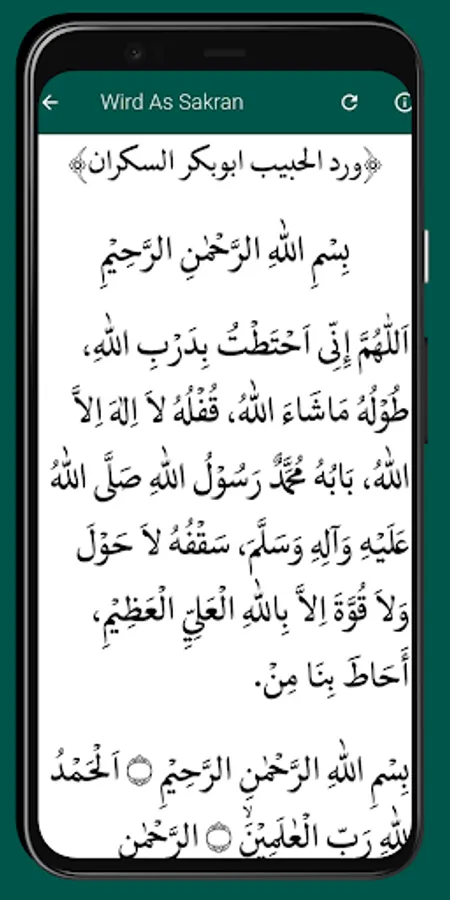 Wird As Sakran
﴿ورد الحبيب ابوبكر السكران﴾
بِسْمِ اللهِ الرَّحْمٰنِ الرَّحِيْمِ
اَللّٰهُمَّ إِنِّى اَحْتَطْتُ بِدَرْبِ اللهِ،
طُوْلُهُ مَاشَاءَ اللهُ، قُفْلُهُ لاَ اِلٰهَ اِلاَّ
اللهُ، بَابُهُ مُحَمَّدٌ رَسُوْلُ اللهِ صَلَّى اللهُ
عَلَيْهِ وَآلِهِ وَسَلَّمَ، سَقْفُهُ لاَ حَوْلَ
وَلاَ قُوَّةَ اِلاَّ بِاللهِ الْعَلِيِّ الْعَظِيْمِ،
أَحَاطَ بِنَا مِنْ.
بِسْمِ اللهِ الرَّحْمٰنِ الرَّحِيْمِ ۝ اَلْحَمْدُ
لِلهِ رَبِّ الْعٰلَمِيْنَۙ ۝ الرَّحْمٰنِ